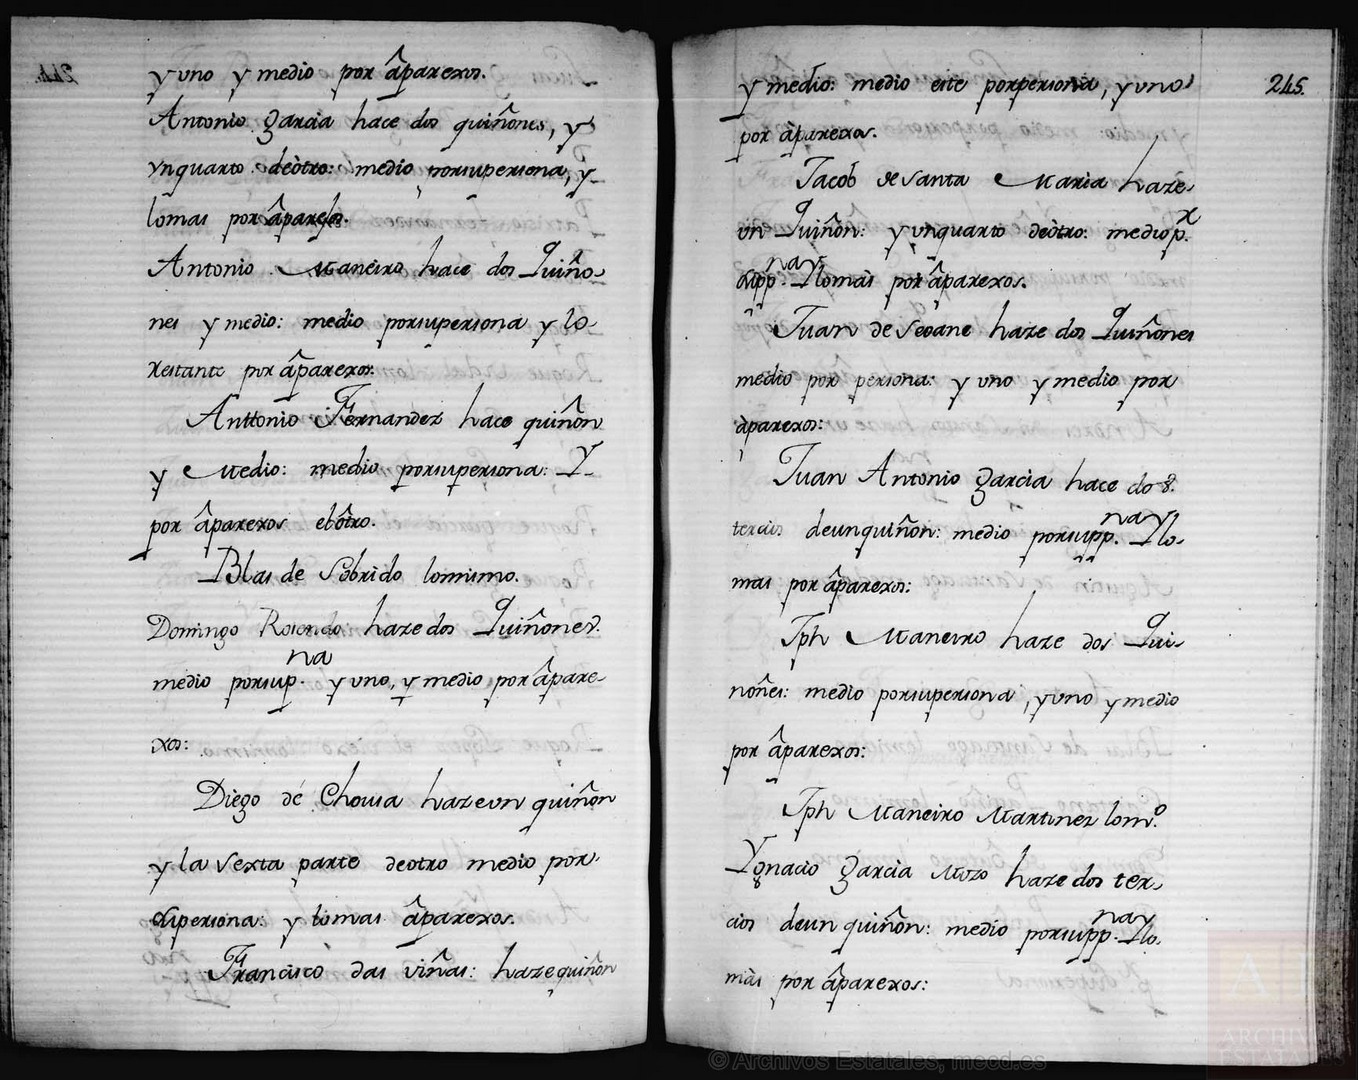 y uno y medio por âparexos.
Antonio garcia hace dos quiñones, y
ynquarto deòtro: medio porsupersona, y
lomas por âparexos.
Antonio Maneiro hace dos Quiño-
nes y medio: medio porsupersona y lo-
restante por âparexos.
Anttonio Fernandez hace quiñon
y Medio: medio porsupersona: Y
por âparexos elôtro.
Blas de Sobrido lomismo.
Domingo Rotondo haze dos Quiñones.
medio porsup.na y uno, y medio por âpare-
xos:
Diègo dé Chousa haze un quiñon
y la sexta parte deotro medio por-
supersona: y lomas âparexos.
Francisco das viñas: haze quiñon
245.
y medio: medio este porpersona, y uno
por âparexos.
Jacob de Santa Maria haze
un Quiñon: y vnquarto deòtro: medio p.r
supp.na y lomas por âparexos.
Juan de Seoane haze dos Quiñones
medio por persona: y uno y medio por
àparexos:
Juan Antonio garcia hace dos
tercios deunquiñon: medio porsupp.na y lo-
mas por âparexos:
Jph Maneiro haze dos Qui-
ñones: medio porsupersona, y uno y medio
por âparexos:
Jph Maneiro Martinez lom.o
Ygnacio garcia Mozo haze dos ter-
cios deun quiñon: medio porsupp.na y lo-
màs por âparexos:
AJ
ARCHIVOS
ESTATALES
© Archivos Estatales, mecd.es